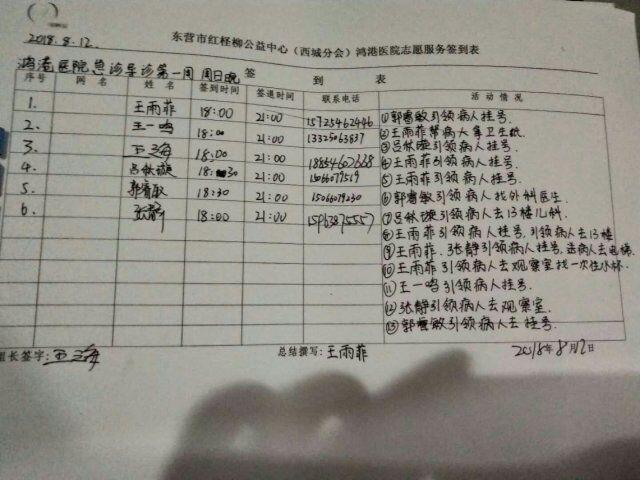 2018.8.12.
东营市红柽柳公益中心（西城分会）鸿港医院志愿服务签到表
鸿港医院急诊导诊第一周 周日晚 签 到 表
序号 网名 姓名 签到时间 签退时间 联系电话 活动情况
1. 王雨菲 18:00 21:00 15725462446
2. 王一鸣 18:00 21:00 13325063837
3. 王海 18:00 21:00
4. 18:30 21:00 15066077519
5. 郭睿敏 18:30 21:00 15066079230
6. 张静 18:00 21:00 15963875557
①郭睿敏引领病人挂号.
②王雨菲帮病人拿卫生纸
③引领病人挂号.
④王雨菲引领病人挂号.
⑤王雨菲引领病人挂号.
⑥郭睿敏引领病人找外科医生.
⑦引领病人去13楼儿科.
⑧王雨菲引领病人挂号,引领病人去13楼
⑨王雨菲.张静引领病人挂号.送病人去电梯.
⑩王雨菲引领病人去观察室找一次性水杯.
⑪王一鸣引领病人挂号.
⑫张静引领病人去观察室.
⑬郭睿敏引领病人去挂号.
组长签字: 王海 总结撰写: 王雨菲 2018年8月12日